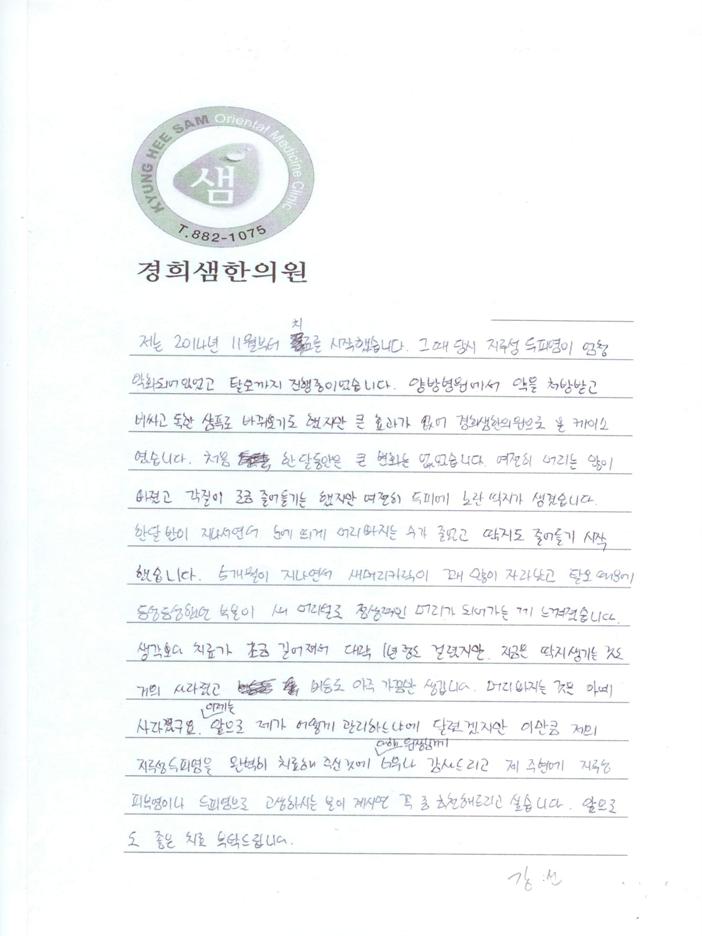 KYUNG HEE SAM Oriental Medicine Clinic
샘
T.882-1075
경희샘한의원
저는 2014년 11월부터 치료를 시작했습니다. 그 때 당시 지루성 두피염이 엄청
악화되어있었고 탈모까지 진행중이었습니다. 양방병원에서 약을 처방받고
비싸고 독한 샴푸로 바꿔보기도 했지만 큰 효과가 없어 경희샘한의원으로 온 케이스
였습니다. 처음 한달동안은 큰 변화는 없었습니다. 여전히 머리는 많이
빠졌고 각질이 조금 줄어들기는 했지만 여전히 두피에 노란 딱지가 생겼습니다.
한달 반이 지나서면서 눈에 띄게 머리 빠지는 수가 줄었고 딱지도 줄어들기 시작
했습니다. 5개월이 지나면서 새머리카락이 꽤 많이 자라났고 탈모 때문에
듬성듬성했던 부분이 새 머리털로 정상적인 머리가 되어가는 게 느껴졌습니다.
생각보다 치료가 조금 길어져서 대략 1년 정도 걸렸지만, 지금은 딱지 생기는 것도
거의 사라졌고 비듬도 아주 가끔만 생깁니다. 머리 빠지는 것은 아예
사라졌구요. 이제는 앞으로 제가 어떻게 관리하느냐에 달렸겠지만 이만큼 저의
지루성두피염을 완벽히 치료해 주신 것에 원장님께 너무나 감사드리고 제 주변에 지루성
피부염이나 두피염으로 고생하시는 분이 계시면 꼭 좀 추천해드리고 싶습니다. 앞으로
도 좋은 치료 부탁드립니다.
강 선